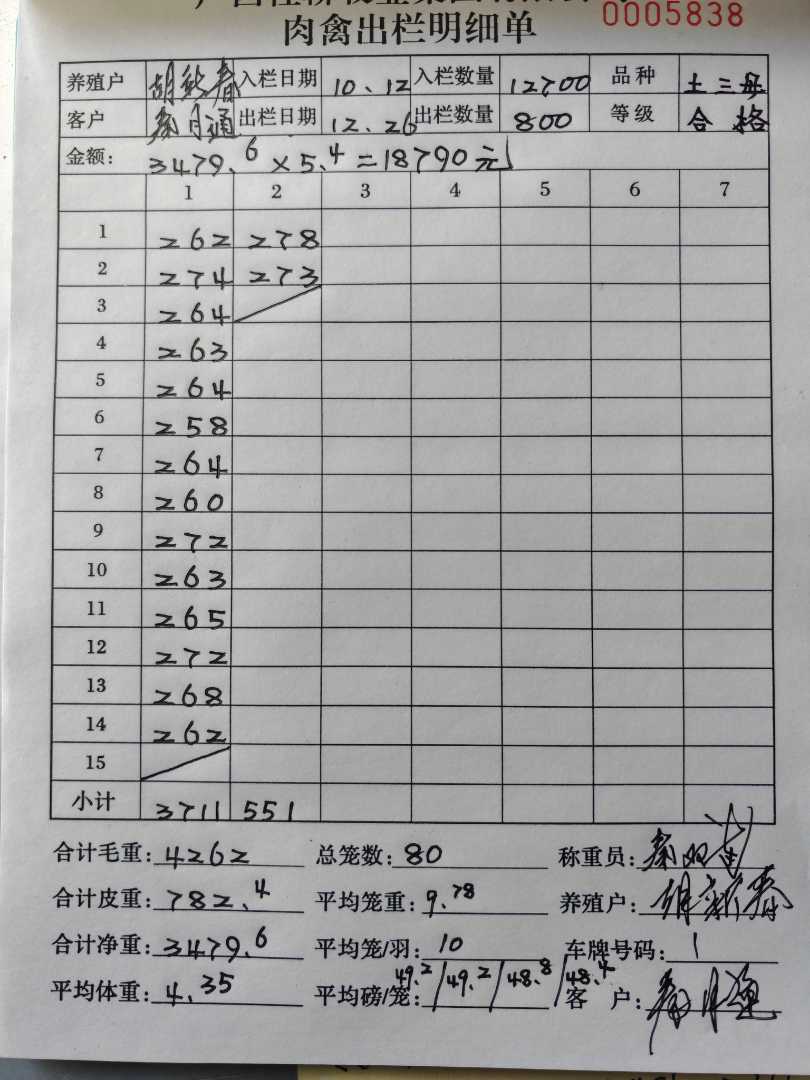 0005838
肉禽出栏明细单
养殖户 入栏日期 10、12 入栏数量 12700 品种 土三母
客户 秦月通 出栏日期 12、26 出栏数量 800 等级 合格
金额: 3479.6×5.4=18790元
1 2 3 4 5 6 7
1 262 278
2 274 273
3 264
4 263
5 264
6 258
7 264
8 260
9 272
10 263
11 265
12 272
13 268
14 262
15
小计 3711 551
合计毛重: 4262 总笼数: 80 称重员:
合计皮重: 782.4 平均笼重: 9.78 养殖户:
合计净重: 3479.6 平均笼/羽: 10 车牌号码: 1
平均体重: 4.35 平均磅/笼: 49.2/49.2/48.8/48.4 客户: 秦月通